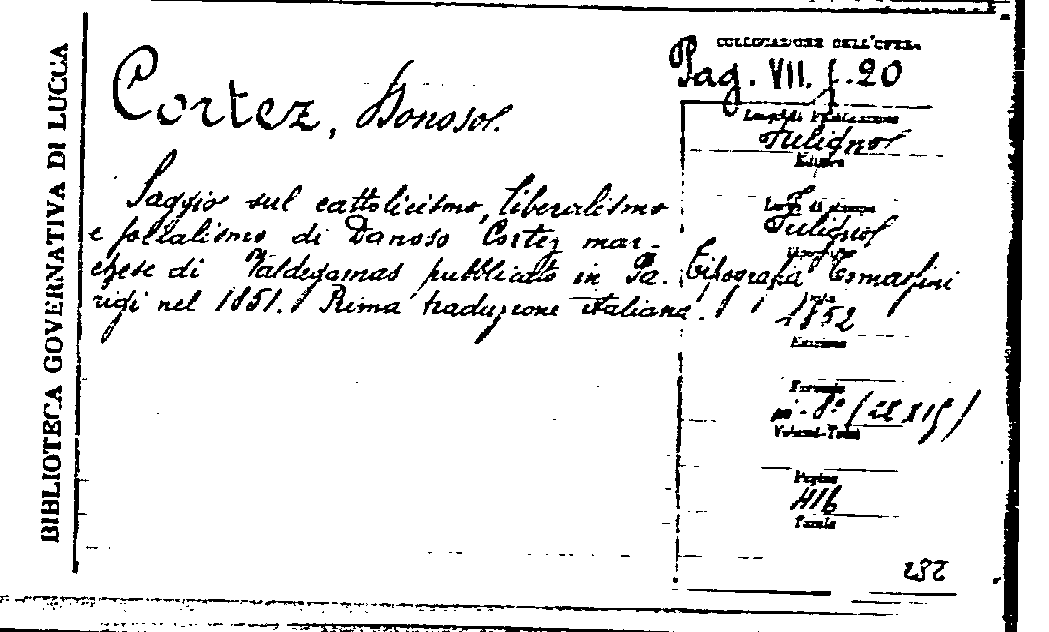 BIBLIOTECA GOVERNATIVA DI LUCCA
Cortez, Donoso.
Saggio sul cattolicismo, liberalismo
e socialismo di Danoso Cortez mar-
chese di Valdegamas pubblicato in Pa-
rigi nel 1851. Prima traduzione italiana.
COLLOCAZIONE DELL'OPERA
Pag. VII. f. 20
Luogo di Pubblicazione
Fuligno
Editore
Luogo di stampa
Fuligno
Tipografia Tomassini
1852
Edizione
Formato
in-8°
Volumi-Tomi
Pagine
416
Tavole
252